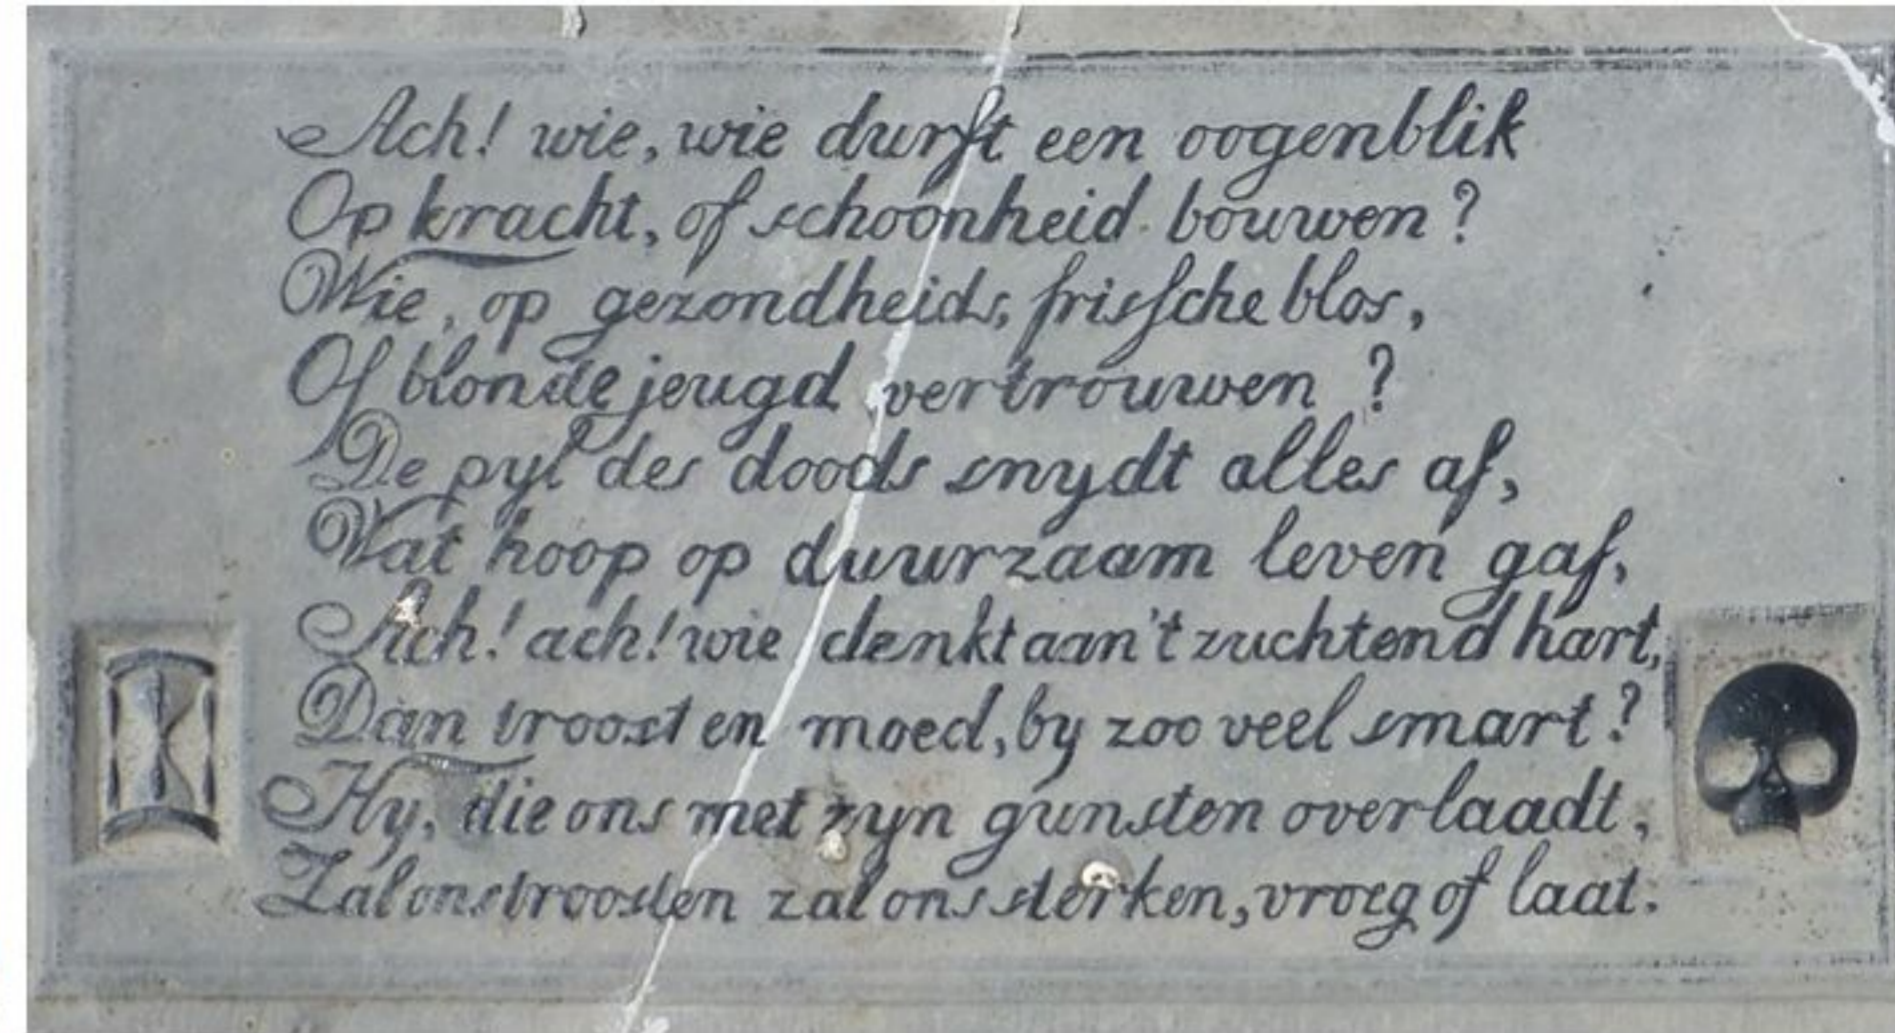 Ach! wie, wie durft een oogenblik
Op kracht, of schoonheid bouwen?
Wie, op gezondheids, frissche blos,
Of blonde jeugd vertrouwen?
De pyl des doods snydt alles af,
Wat hoop op duurzaam leven gaf,
Ach! ach! wie denkt aan't zuchtend hart,
Dan troost en moed, by zoo veel smart?
Hy, die ons met zyn gunsten overlaadt,
Zal ons troosten zal ons sterken, vroeg of laat.